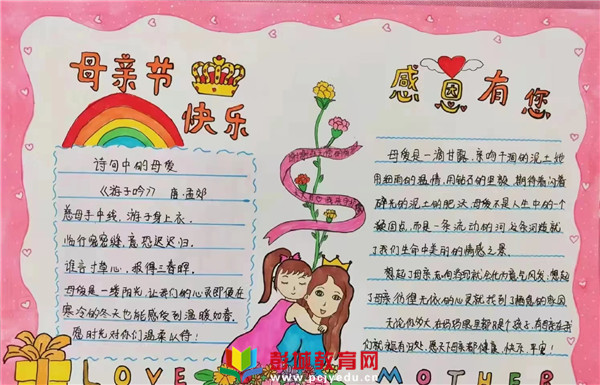 母亲节
快乐
感恩有您
诗句中的母爱
《游子吟》 唐·孟郊
慈母手中线，游子身上衣，
临行密密缝，意恐迟迟归，
谁言寸草心，报得三春晖。
母爱是一缕阳光，让我们的心灵即使在
寒冷的冬天也能感受到温暖如春，
愿时光对你们温柔以待！
母爱是一滴甘露，亲吻干涸的泥土，它
用细雨的温情，用钻石的坚毅，期待着闪着
碎光的泥土的肥沃，母爱不是人生中的一个
凝固点，而是一条流动的河，这条河造就
了我们生命中美丽的情感之景
想起了母亲，志向消沉就会化为意气风发，想起
了母亲，彷徨无依的心灵就找到了栖息的家园
无论你多大，在妈妈眼里都只是个孩子
们就
健康 快乐 平安！
LOVE
MOTHER
彭城教育网
www.pcjyedu.cn